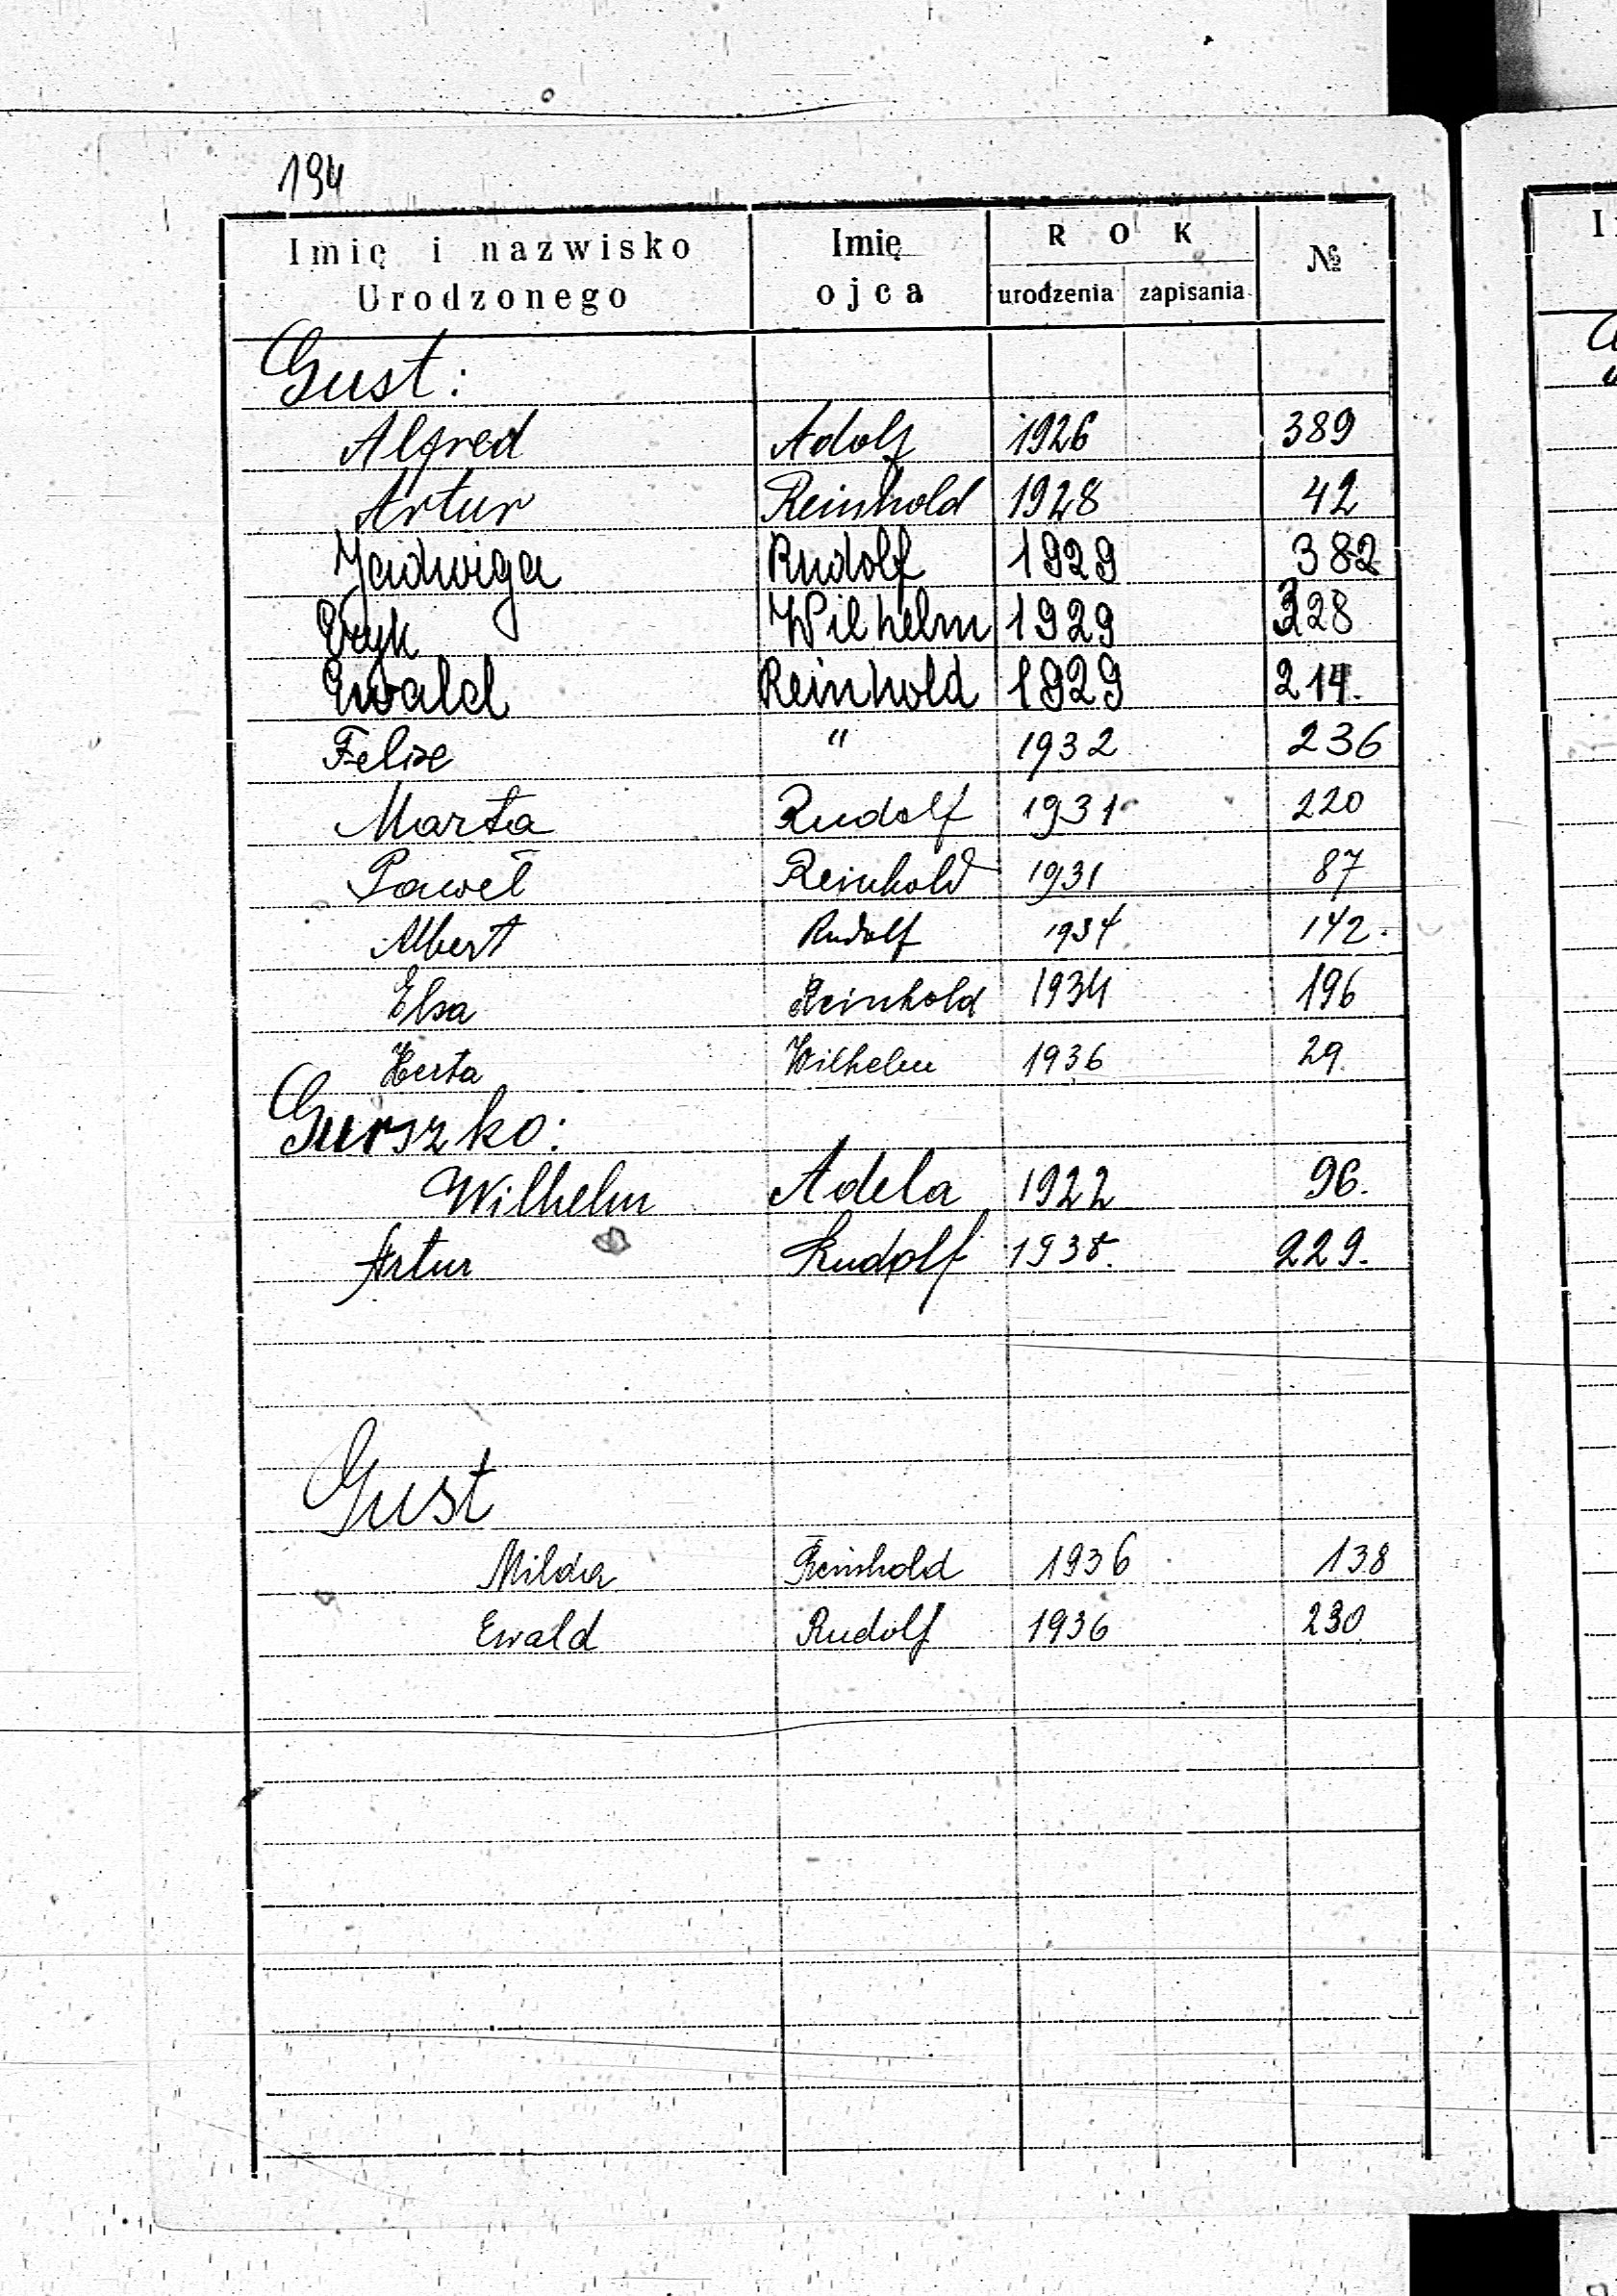 194
Imię i nazwisko Urodzonego Imię ojca ROK urodzenia zapisania №
Gust:
Alfred Adolf 1926 389
Artur Reinhold 1928 42
Jadwiga Rudolf 1929 382
Eryk Wilhelm 1929 328
Ewald Reinhold 1929 214.
Felixe " 1932 236
Marta Rudolf 1931 220
Paweł Reinhold 1931 87
Albert Rudolf 1934 142.
Elsa Reinhold 1934 196
Herta Wilhelm 1936 29
Gurszko:
Wilhelm Adela 1922 96.
Artur Rudolf 1938. 229.
Gust
Milda Reinhold 1936 138
Ewald Rudolf 1936 230